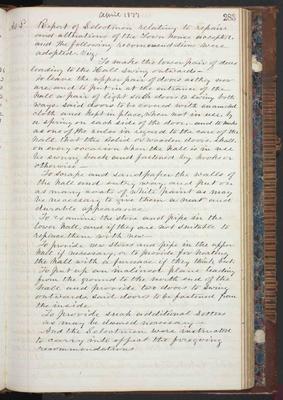 April 1877
283
Report of Selectmen relating to repairs
and alterations of the Town house accepted,
and the following recommendations were
adopted. Viz.
To make the lower pair of doors
leading to the Hall swing outwards—
To leave the upper pair of doors as they now
are and to put in at the entrance of the
hall a pair of light sash doors to swing both
ways said doors to be covered with enameled
cloth and kept in place, when not in use, by
a spring on each side of the door, and to make
as one of the rules in regard to the care of the
hall, that the solid or wooden doors, shall
on every occasion when the hall is in use
be swung back and fastened by hooks or
otherwise—
To scrape and sandpaper the walls of
the hall and entry way, and put on
as many coats of white paint as may
be necessary to give them a neat and
durable appearance
To examine the stove and pipe in the
lower hall, and if they are not suitable to
replace them with new—
To provide new stoves and pipe in the upper
hall if necessary, or to provide for heating
the hall with a furnace if they think best
To put up an inclined plane leading
from the ground to the south end of the
hall and provide two doors to swing
outwards said doors to be fastened from
the inside
To provide such additional settees
as may be deemed necessary—
And the Selectmen were instructed
to carry into effect the foregoing
recommendations